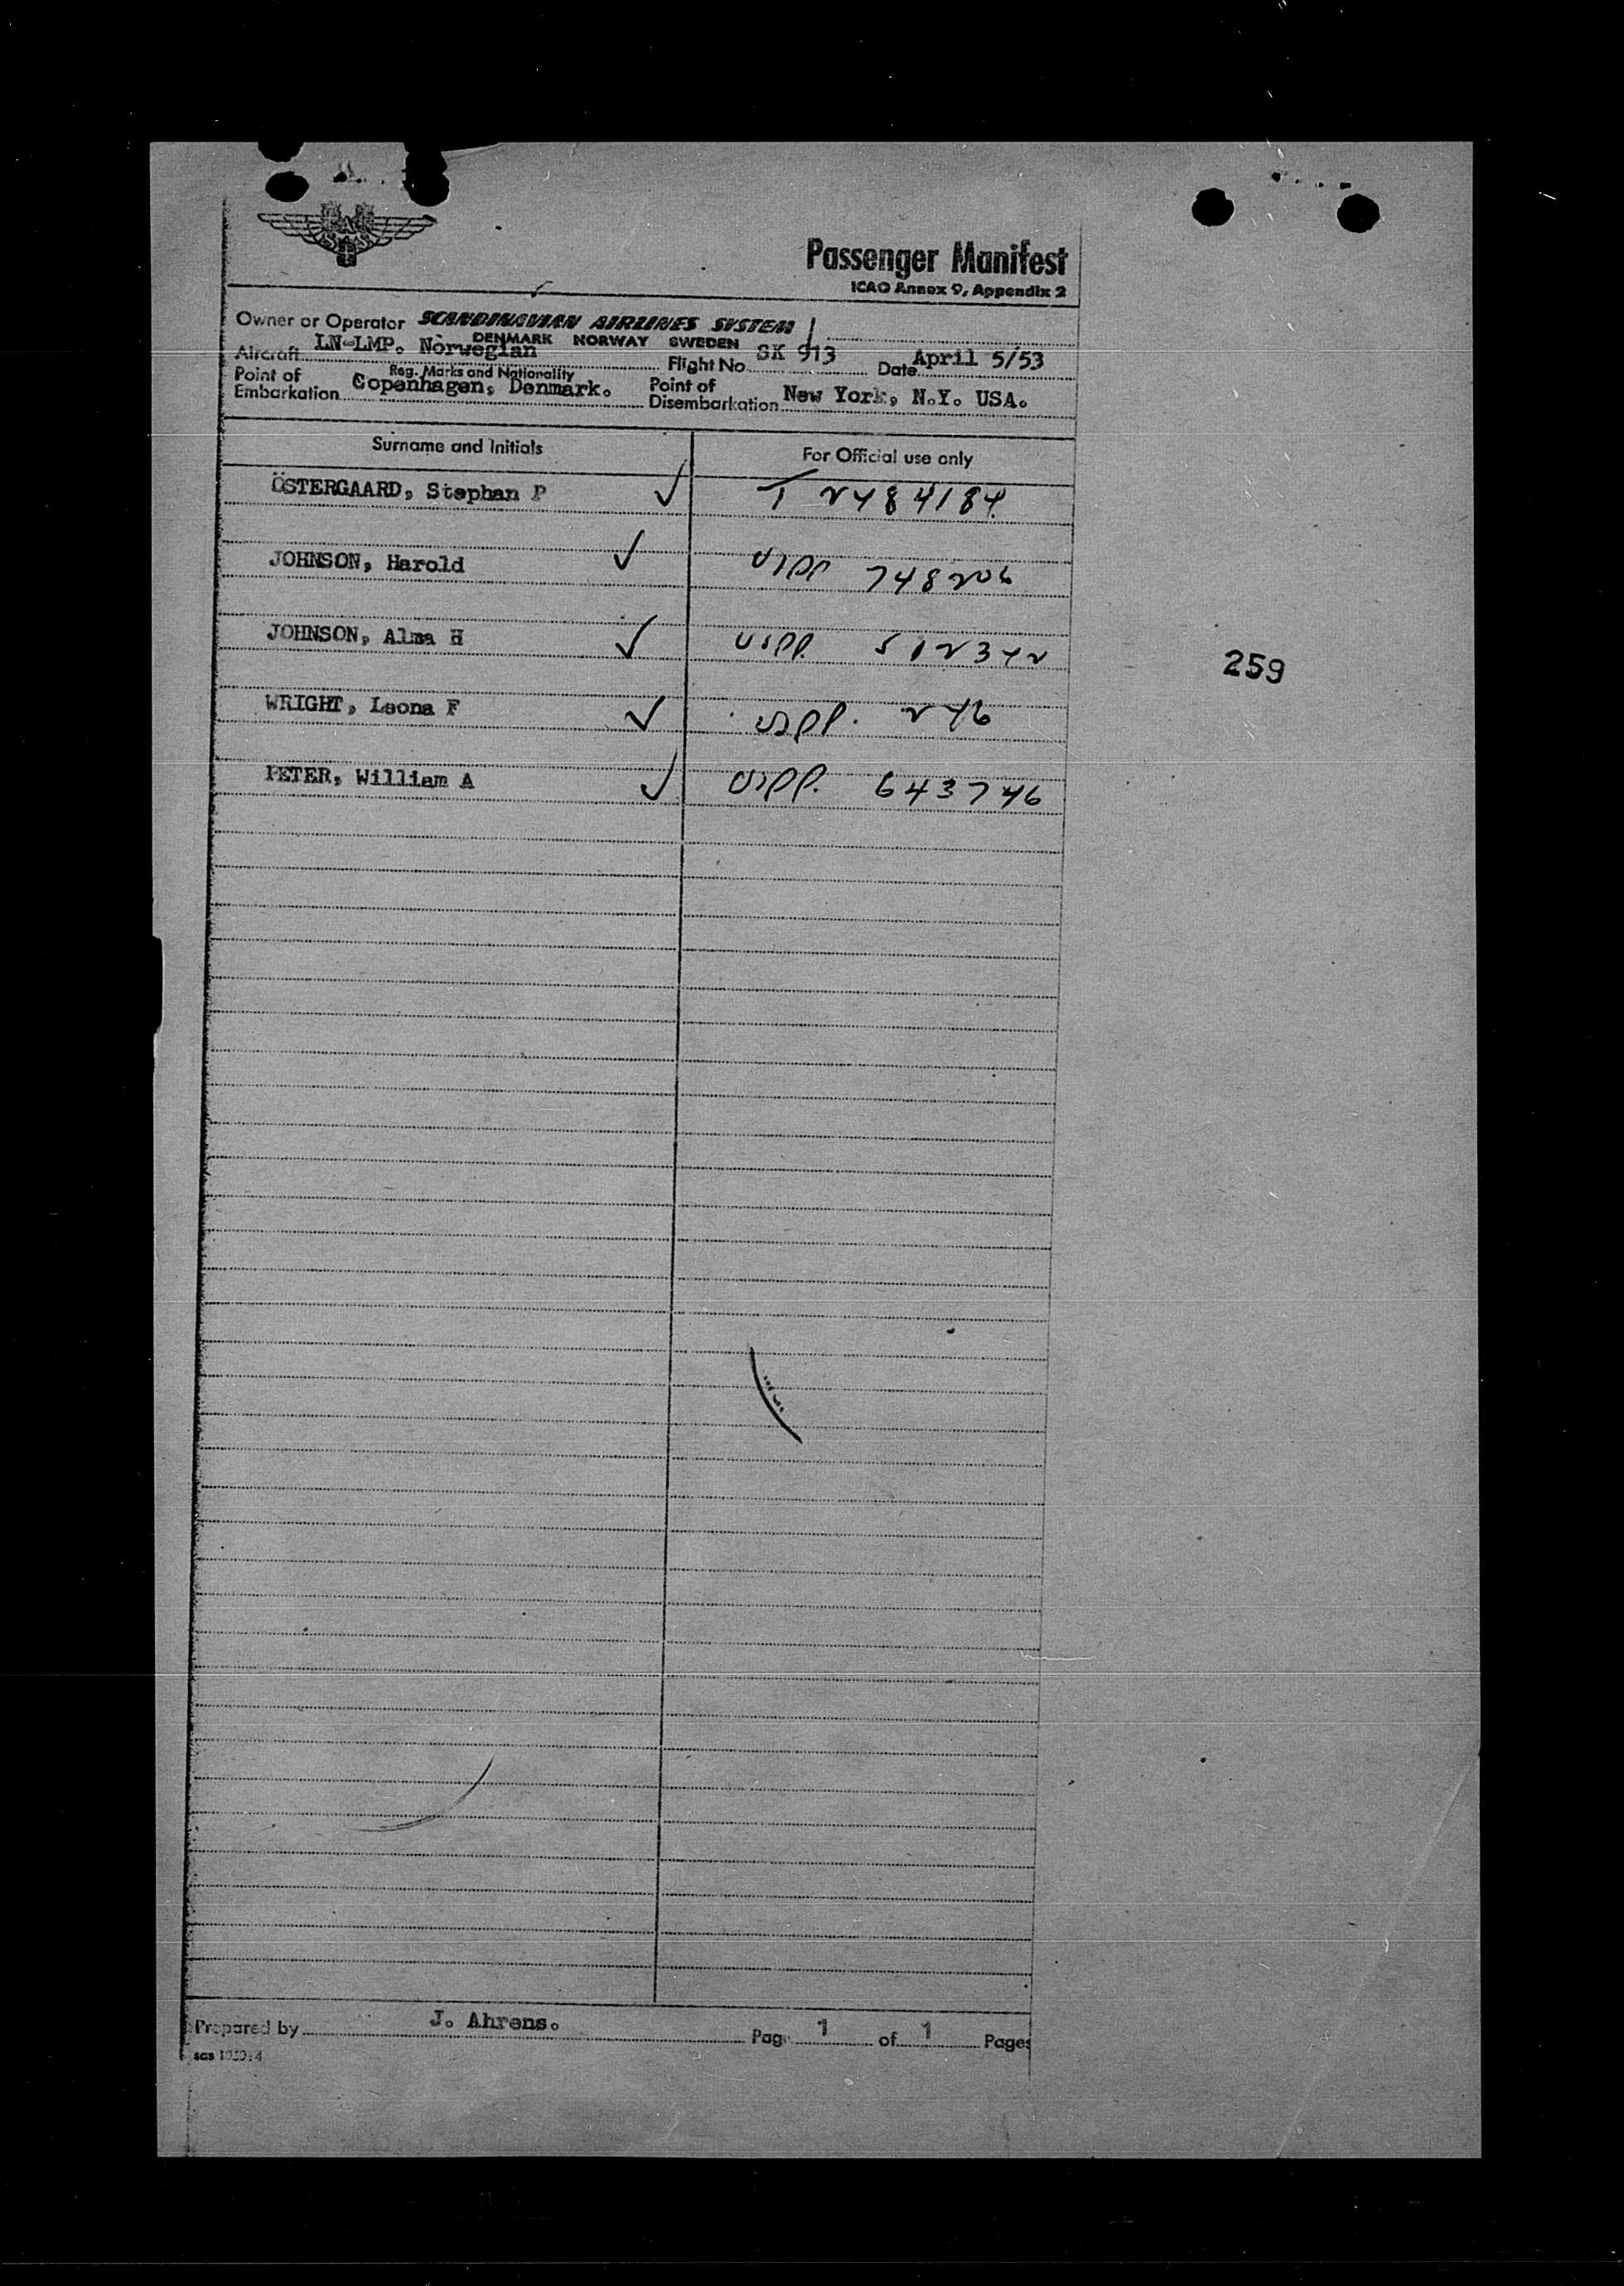 SAS
Passenger Manifest
ICAO Annex 9, Appendix 2
Owner or Operator SCANDINAVIAN AIRLINES SYSTEM
DENMARK NORWAY SWEDEN
Aircraft LN-LMP. Norwegian Flight No. SK 913 Date April 5/53
Reg. Marks and Nationality
Point of Embarkation Copenhagen, Denmark. Point of Disembarkation New York, N.Y. USA.
Surname and Initials For Official use only
ÖSTERGAARD, Stephan P ✓ T 2484184
JOHNSON, Harold ✓ USPP 748206
JOHNSON, Alma H ✓ USPP. 512342
259
WRIGHT, Leona F ✓ USPP. 246
PETER, William A ✓ USPP. 643746
Prepared by J. Ahrens. Page 1 of 1 Pages